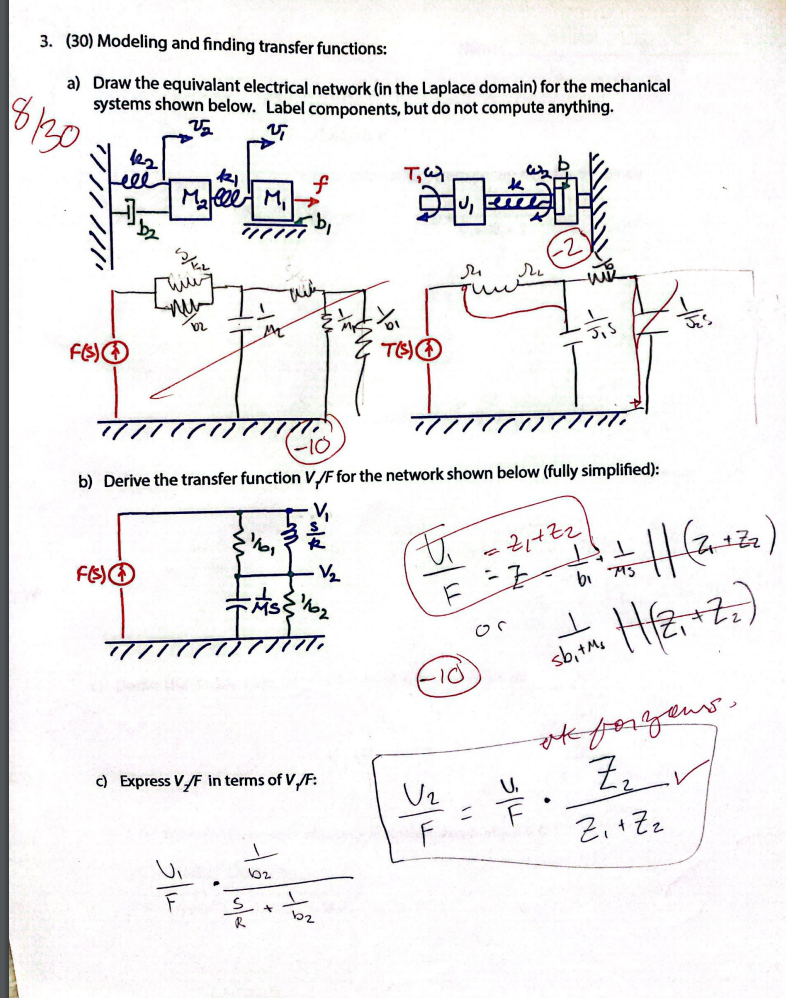 3. (30) Modeling and finding transfer functions:
a) Draw the equivalant electrical network (in the Laplace domain) for the mechanical
systems shown below. Label components, but do not compute anything.
8/30
v2 v1
k2 k1 f
M2 M1
b2 b1
T, ω1 ω2 b
J1 k
-2
S/k2
1/b2 1/M2 1/b1
F(s)
-10
Ω1 Ω2
T(s) 1/J1S 1/J2S
b) Derive the transfer function V1/F for the network shown below (fully simplified):
V1
1/b1 S/k
F(s) V2
1/MS 1/b2
U1/F = Z1+Z2
= Z = 1/b1 + 1/MS || (Z1+Z2)
or 1/sb1+Ms || (Z1+Z2)
-10
ok for yours.
c) Express V2/F in terms of V1/F:
U2/F = U1/F · Z2/Z1+Z2
U1/F · 1/b2 / S/R + 1/b2